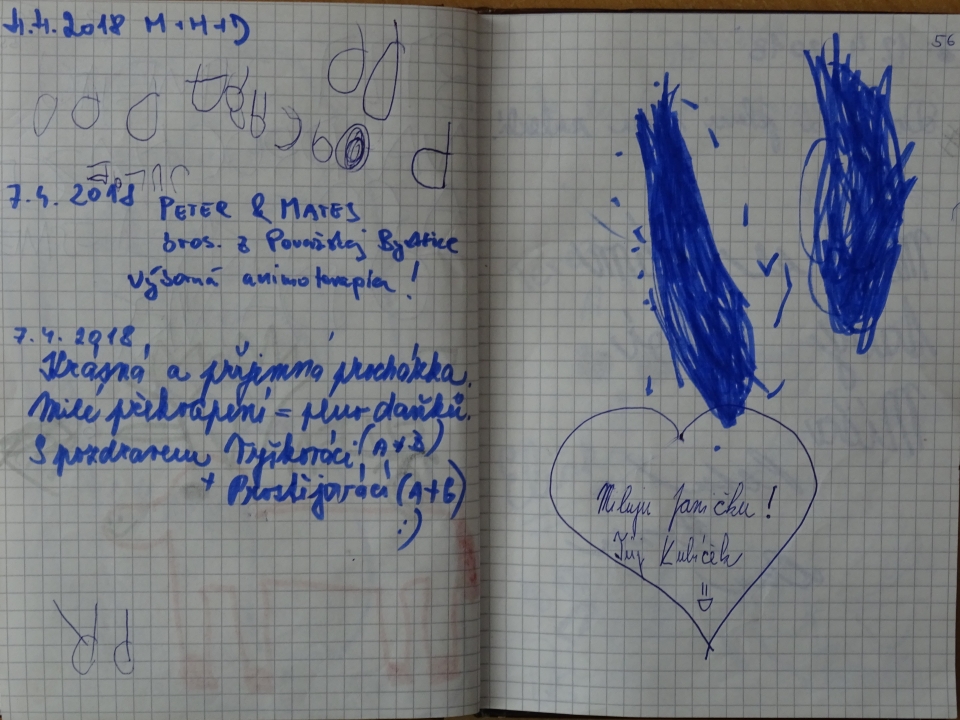 4.4.2018 M+M+D
7.4. 2018 PETER & MATES
bros. z Považskej Bystrice
výborná animoterapia!
7.4. 2018
Krásná a příjemná procházka.
Milé překvapení = plno daňků.
S pozdravem Fryštováci (A+B)
+ Prostijováci (A+B)
:)
PR
56
Miluju Janičku!
Tvůj Kubíček